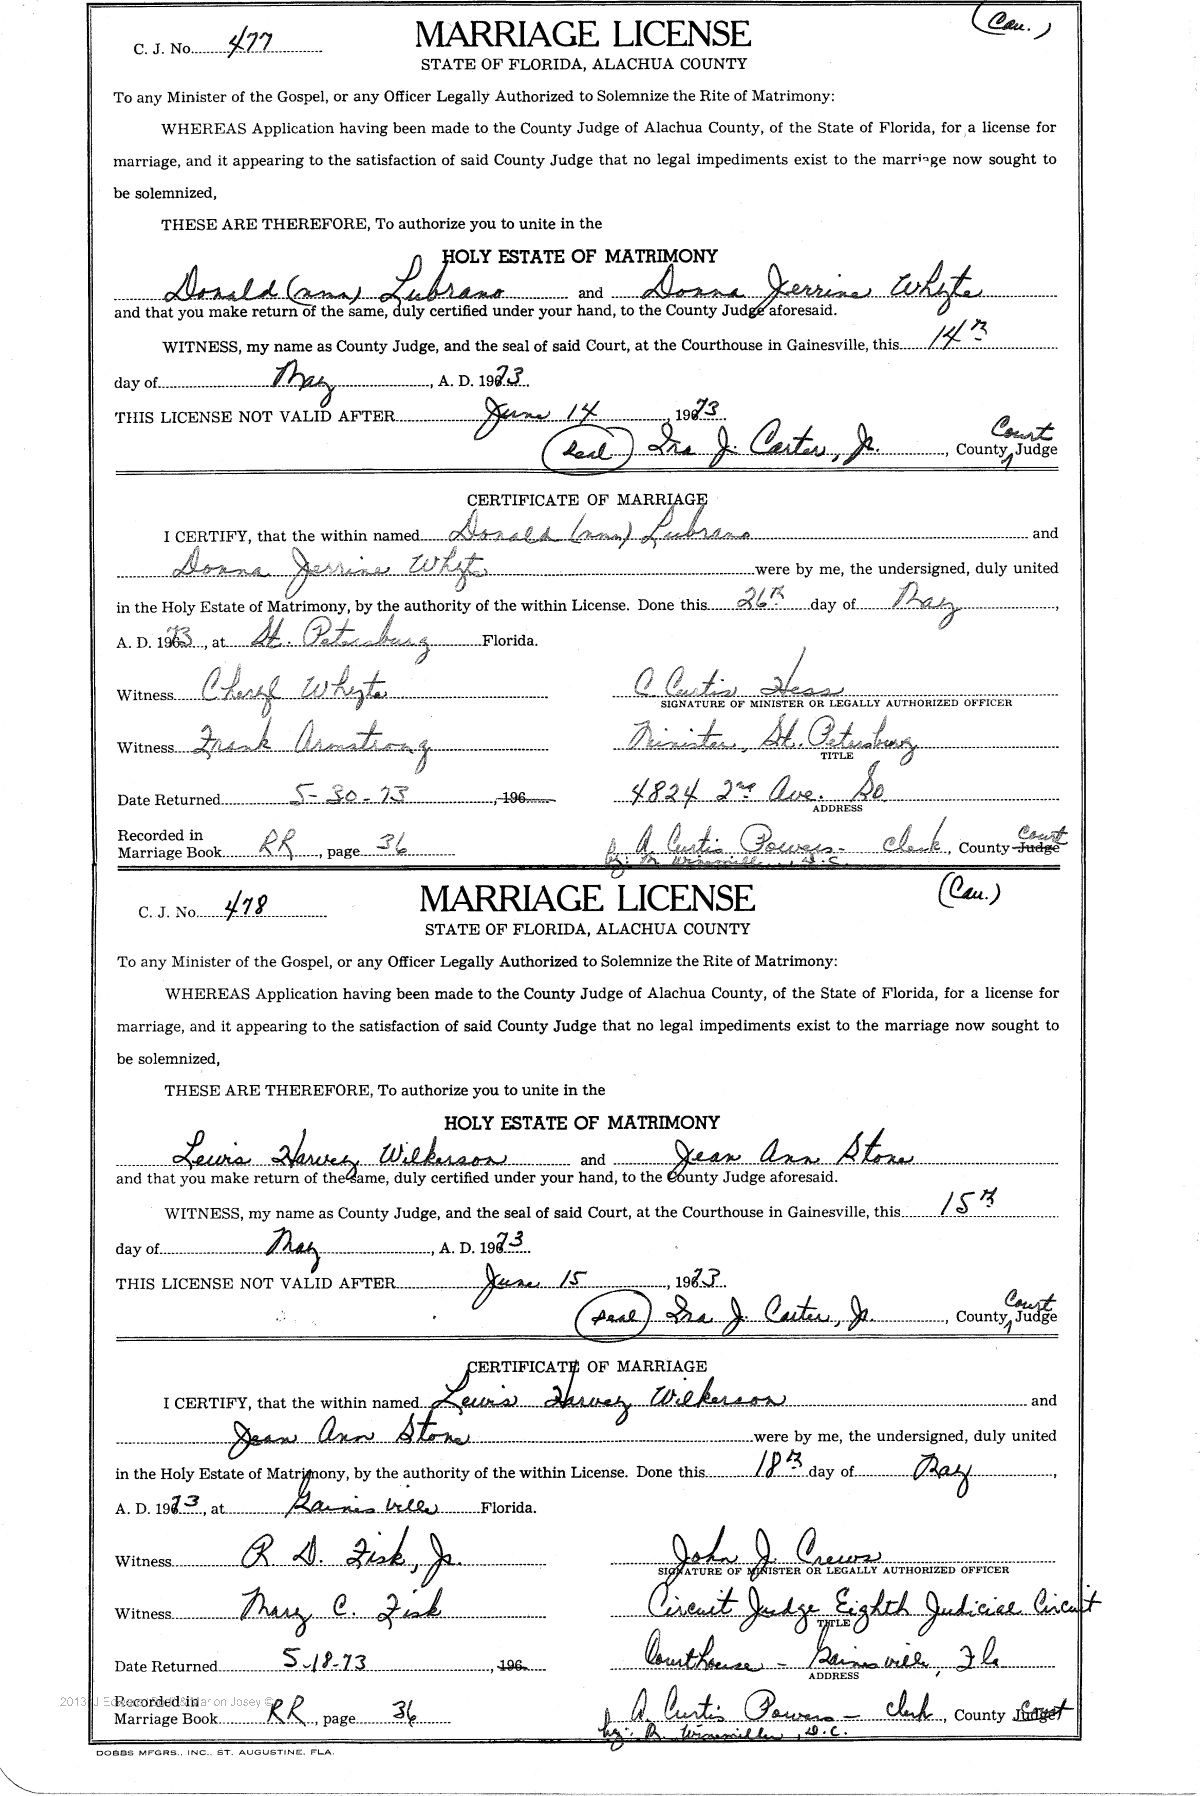 (Cau.)
C. J. No. 477
MARRIAGE LICENSE
STATE OF FLORIDA, ALACHUA COUNTY
To any Minister of the Gospel, or any Officer Legally Authorized to Solemnize the Rite of Matrimony:
WHEREAS Application having been made to the County Judge of Alachua County, of the State of Florida, for a license for
marriage, and it appearing to the satisfaction of said County Judge that no legal impediments exist to the marriage now sought to
be solemnized,
THESE ARE THEREFORE, To authorize you to unite in the
HOLY ESTATE OF MATRIMONY
Donald (nmn) Lubrano and Donna Jerrine Whyte
and that you make return of the same, duly certified under your hand, to the County Judge aforesaid.
WITNESS, my name as County Judge, and the seal of said Court, at the Courthouse in Gainesville, this 14th
day of May, A. D. 1973.
THIS LICENSE NOT VALID AFTER June 14, 1973
(seal) Ira J. Carter, Jr., County Court Judge
CERTIFICATE OF MARRIAGE
I CERTIFY, that the within named Donald (nmn) Lubrano and
Donna Jerrine Whyte were by me, the undersigned, duly united
in the Holy Estate of Matrimony, by the authority of the within License. Done this 26th day of May,
A. D. 1973, at St. Petersburg Florida.
Witness Cheryl Whyte C Curtis Hess
SIGNATURE OF MINISTER OR LEGALLY AUTHORIZED OFFICER
Witness Frank Armstrong Minister, St. Petersburg
TITLE
Date Returned 5-30-73, 196 4824 2nd Ave. So
ADDRESS
Recorded in
Marriage Book RR, page 36 A. Curtis Powers - Clerk, County Court Judge
by: M. Winesmiller, D.C.
(Cau.)
C. J. No. 478
MARRIAGE LICENSE
STATE OF FLORIDA, ALACHUA COUNTY
To any Minister of the Gospel, or any Officer Legally Authorized to Solemnize the Rite of Matrimony:
WHEREAS Application having been made to the County Judge of Alachua County, of the State of Florida, for a license for
marriage, and it appearing to the satisfaction of said County Judge that no legal impediments exist to the marriage now sought to
be solemnized,
THESE ARE THEREFORE, To authorize you to unite in the
HOLY ESTATE OF MATRIMONY
Lewis Harvey Wilkerson and Jean Ann Stone
and that you make return of the same, duly certified under your hand, to the County Judge aforesaid.
WITNESS, my name as County Judge, and the seal of said Court, at the Courthouse in Gainesville, this 15th
day of May, A. D. 1973.
THIS LICENSE NOT VALID AFTER June 15, 1973
(seal) Ira J. Carter, Jr., County Court Judge
CERTIFICATE OF MARRIAGE
I CERTIFY, that the within named Lewis Harvey Wilkerson and
Jean Ann Stone were by me, the undersigned, duly united
in the Holy Estate of Matrimony, by the authority of the within License. Done this 18th day of May,
A. D. 1973, at Gainesville Florida.
Witness R. D. Fisk, Jr. John J. Crews
SIGNATURE OF MINISTER OR LEGALLY AUTHORIZED OFFICER
Witness Mary C. Fisk Circuit Judge Eighth Judicial Circuit
TITLE
Date Returned 5-18-73, 196 Courthouse - Gainesville, Fla
ADDRESS
Recorded in
Marriage Book RR, page 36 A. Curtis Powers - Clerk, County Judge
by: Winesmiller, D.C.
DOBBS MFGRS., INC., ST. AUGUSTINE, FLA.